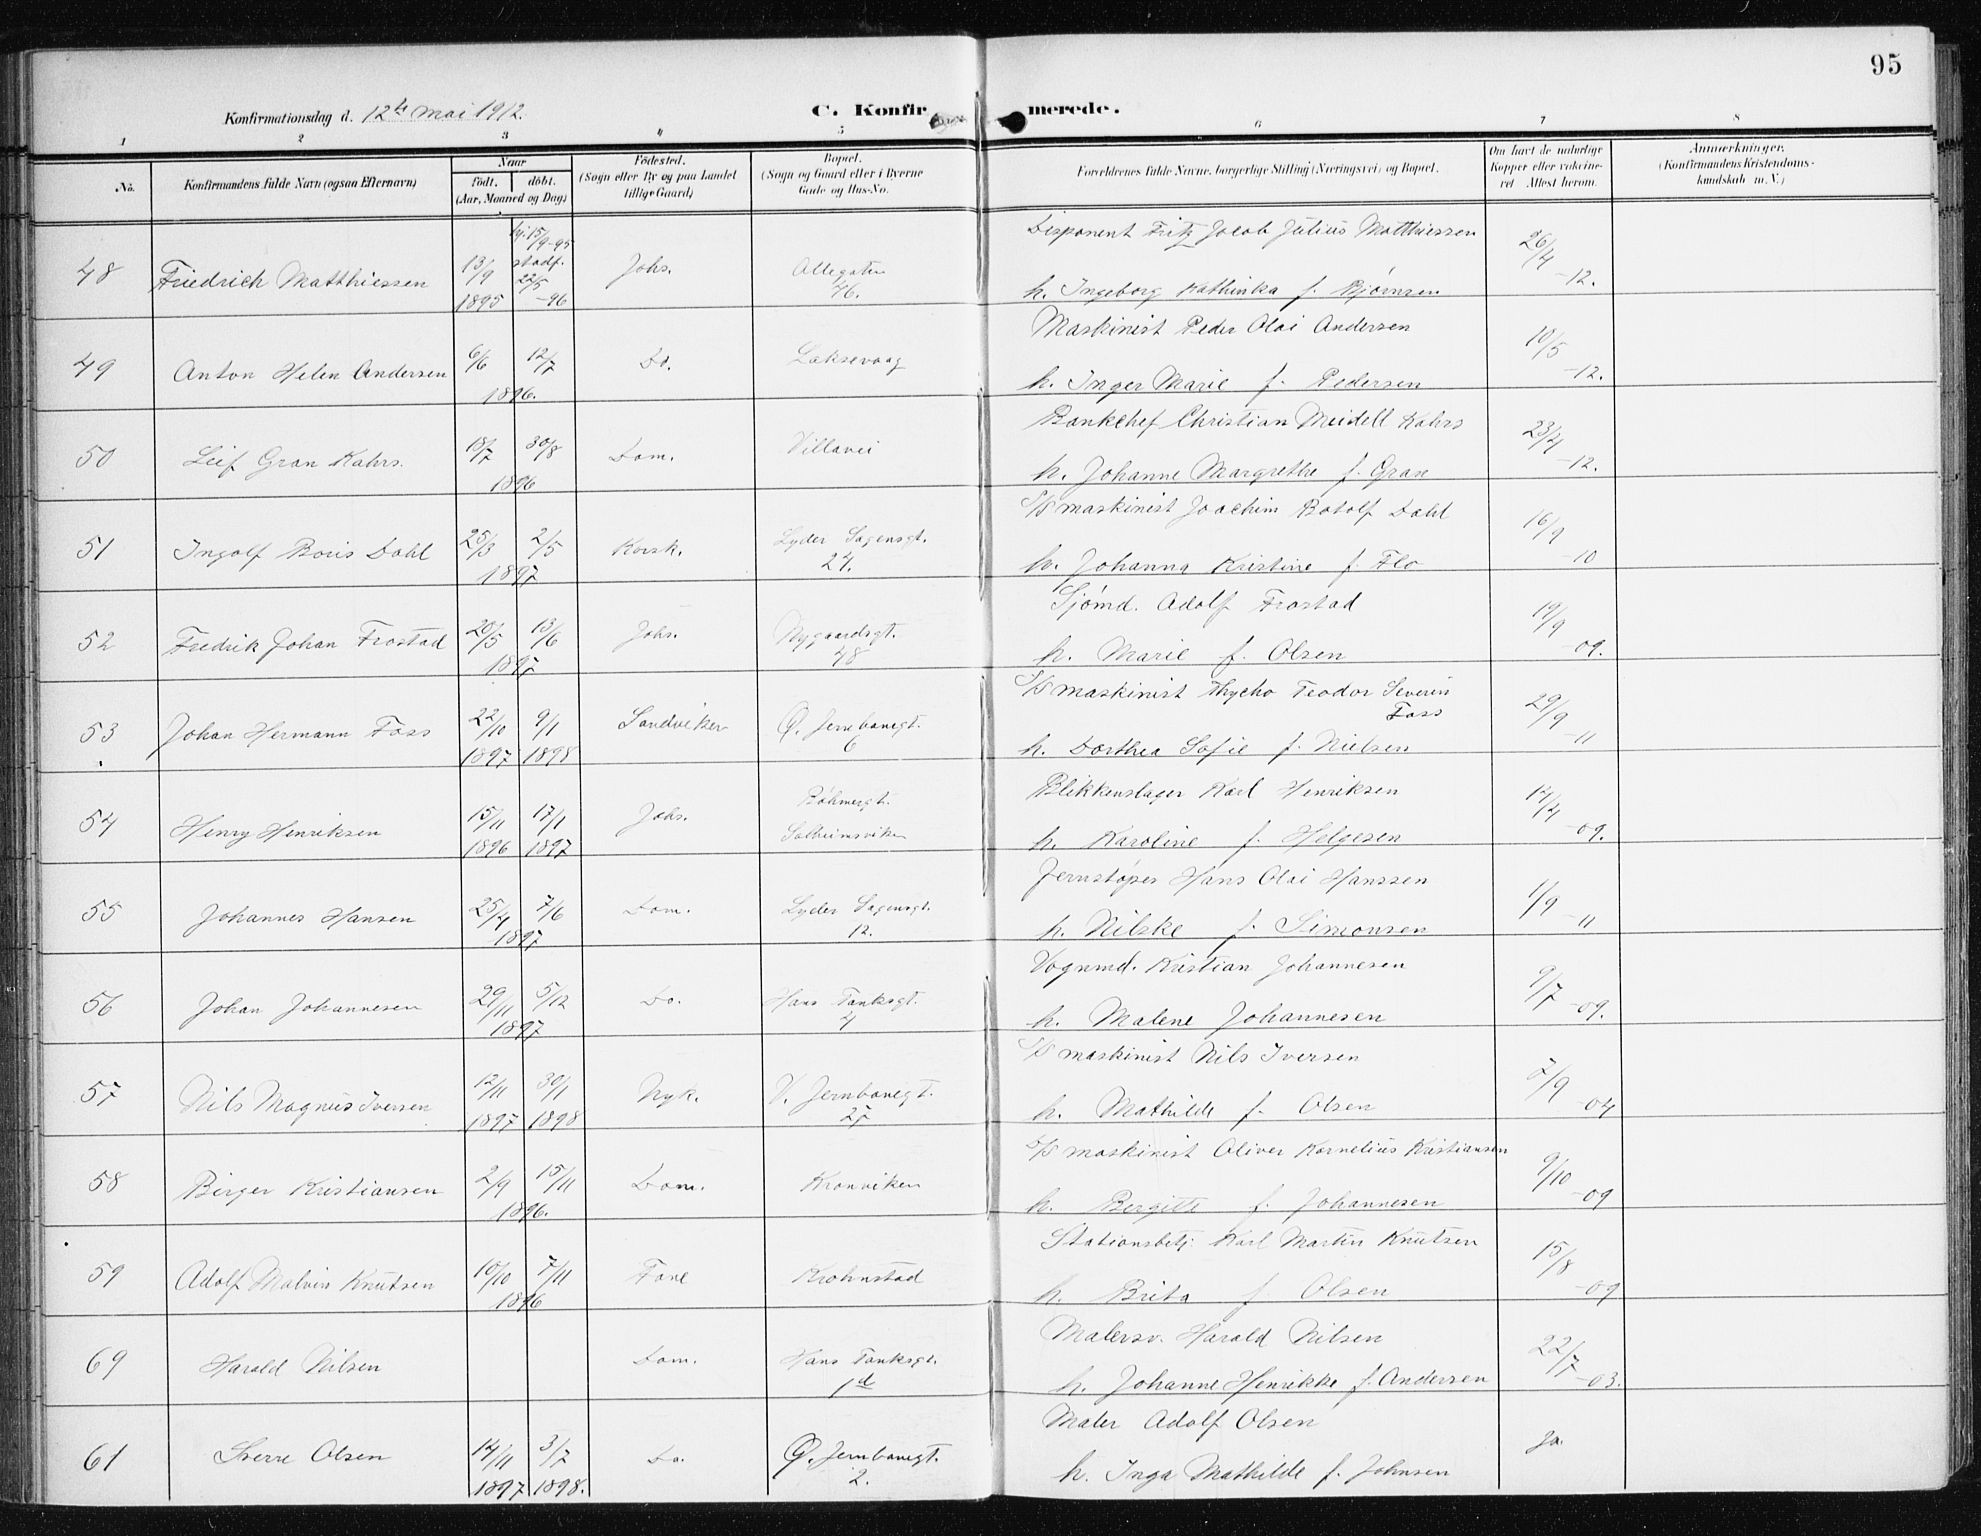 95
Konfirmationsdag d. 12te mai 1912.
C. Konfirmerede.
1 2 3 4 5 6 7 8
No.
Konfirmandens fulde Navn (ogsaa Efternavn)
Naar
født. døbt.
(Aar, Maaned og Dag)
Fødested.
(Sogn eller By og paa Landet
tillige Gaard)
Bopæl.
(Sogn og Gaard eller i Byerne
Gade og Hus-No.
Forældrenes fulde Navne, borgerlige Stilling (Næringsvei) og Bopæl.
Om havt de naturlige
Kopper eller vaccine-
ret Attest herom.
Anmærkninger.
(Konfirmandens Kristendoms-
kundskab m. V.)
48 Friedrich Matthiessen 13/9 1895 hj. 15/9-95 stadf. 22/5-96 Johs. Allegaten 46.
Disponent Fritz Jacob Julius Matthiessen
h. Ingeborg Kathinka f. Bjørnsen 26/4-12.
49 Anton Helen Andersen 6/6 12/7 1896. Do. Laksevaag
Maskinist Peder Olai Andersen
h. Inger Marie f. Pedersen 10/5-12.
50 Leif Gran Kahrs. 18/7 30/8 1896 Dom. Villavei
Bankchef Christian Meidell Kahrs
h. Johanne Margrethe f. Gran 23/4-12.
51 Ingolf Boris Dahl 25/3 2/5 1897 Korsk. Lyder Sagensgt. 24.
S/S maskinist Joachim Botolf Dahl
h. Johanna Kristine f. Flo 16/9-10
52 Fredrik Johan Frostad 20/5 13/6 1897 Johs. Nygaardsgt. 48
Sjømd. Adolf Frostad
h. Marie f. Olsen 19/9-09.
53 Johan Hermann Foss 22/10 1897 9/1 1898 Sandviken Ø. Jernbanegt. 6
S/S maskinist Thycho Feodor Severin
Foss
h. Dorthea Sofie f. Nielsen 29/9-11
54 Henry Henriksen 15/11 1896 17/1 1897 Johs. Bøhmergt. Solheimsviken
Blikkenslager Karl Henriksen
h. Karoline f. Helgesen 14/4-09.
55 Johannes Hansen 25/4 7/6 1897 Dom. Lyder Sagensgt. 12.
Jernstøper Hans Olai Hanssen
h. Nilske f. Simonsen 1/9-11
56 Johan Johannesen 29/11 5/12 1897 Do. Hans Tanksgt. 4
Vognmd. Kristian Johannesen
h. Malene Johannesen 9/7-09.
57 Nils Magnus Iversen 12/11 1897 30/1 1898 Nyk. V. Jernbanegt. 25
S/S maskinist Nils Iversen
h. Mathilde f. Olsen 7/9-04
58 Birger Kristiansen 2/9 15/11 1896. Dom. Kronviken
S/S maskinist Oliver Kornelius Kristiansen
h. Bergitte f. Johannesen 9/10-09
59 Adolf Malvin Knutsen 10/10 7/11 1896 Fane Krohnstad
Stationsbetj. Karl Martin Knutsen
h. Brita f. Olsen 15/8-09
69 Harald Nilsen Dom. Hans Tanksgt. 1d
Malersv. Harald Nilsen
h. Johanne Henrikke f. Andersen 22/7-03.
61 Sverre Olsen 14/11 1897 3/7 1898. Do. Ø. Jernbanegt. 2.
Maler Adolf Olsen
h. Inga Mathilde f. Johnsen Ja.